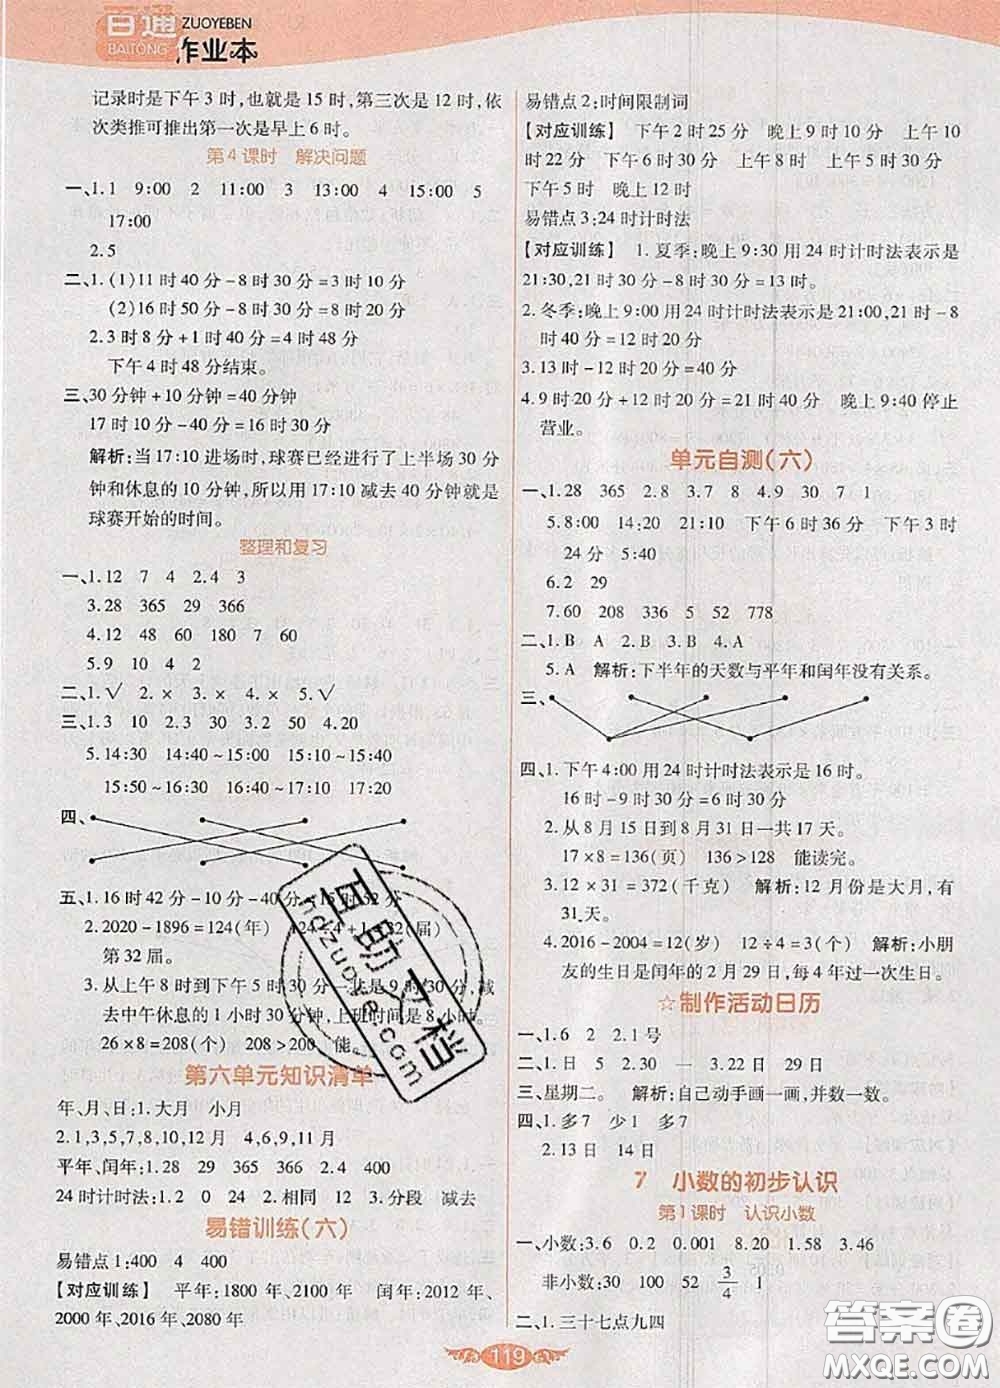 百通
BAITONG
ZUOYEBEN
作业本
记录时是下午 3 时,也就是 15 时,第三次是 12 时,依
次类推可推出第一次是早上 6 时。
第 4 课时 解决问题
一、1.1 9:00 2 11:00 3 13:00 4 15:00 5
17:00
2.5
二、1.(1)11 时 40 分-8 时 30 分=3 时 10 分
(2)16 时 50 分-8 时 30 分=8 时 20 分
2.3 时 8 分+1 时 40 分=4 时 48 分
下午 4 时 48 分结束。
三、30 分钟+10 分钟=40 分钟
17 时 10 分-40 分=16 时 30 分
解析:当 17:10 进场时,球赛已经进行了上半场 30 分
钟和休息的 10 分钟,所以用 17:10 减去 40 分钟就是
球赛开始的时间。
整理和复习
一、1.12 7 4 2.4 3
3.28 365 29 366
4.12 48 60 180 7 60
5.9 10 4 2
二、1.√ 2.× 3.× 4.× 5.√
三、1.3 10 2.3 30 3.2 50 4.20
5.14:30 14:40~15:10 15:20~15:50
15:50~16:30 16:40~17:10 17:20
四、
五、1.16 时 42 分-10 分-40 分-10 分-40 分=15 时 32 分
2.2020-1896=124(年) 124÷4+1=32(届)
第 32 届。
3.从上午 8 时到下午 5 时 30 分一共是 9 时 30 分,减
去中午休息的 1 小时 30 分钟,上班时间是 8 小时。
26×8=208(个) 208>200 能。
第六单元知识清单
年、月、日:1.大月 小月
2.1,3,5,7,8,10,12 月 4,6,9,11 月
平年、闰年:1.28 29 365 366 2.4 400
24 时计时法:1.2 24 2.相同 12 3.分段 减去
易错训练(六)
易错点 1:400 4 400
【对应训练】 平年:1800 年、2100 年 闰年:2012 年、
2000 年、2016 年、2080 年
易错点 2:时间限制词
【对应训练】 下午 2 时 25 分 晚上 9 时 10 分 上午 10
时 22 分 下午 5 时 30 分 上午 8 时 上午 5 时 30 分
下午 5 时 晚上 12 时
易错点 3:24 时计时法
【对应训练】 1.夏季:晚上 9:30 用 24 时计时法表示是
21:30,21 时 30 分-8 时 30 分=13 时。
2.冬季:晚上 9:00 用 24 时计时法表示是 21:00,21 时-8
时 40 分=12 时 20 分
3.13 时-12 时 20 分=40 分
4.9 时 20 分+12 时 20 分=21 时 40 分 晚上 9:40 停止
营业。
单元自测(六)
一、1.28 365 2.8 3.7 8 4.9 30 7 1
5.8:00 14:20 21:10 下午 6 时 36 分 下午 3 时
24 分 5:40
6.2 29
7.60 208 336 5 52 778
二、1.B A 2.B 3.B 4.A
5.A 解析:下半年的天数与平年和闰年没有关系。
三、
四、1.下午 4:00 用 24 时计时法表示是 16 时。
16 时-9 时 30 分=6 时 30 分
2.从 8 月 15 日到 8 月 31 日一共 17 天。
17×8=136(页) 136>128 能读完。
3.12×31=372(千克) 解析:12 月份是大月,有
31 天。
4.2016-2004=12(岁) 12÷4=3(个) 解析:小朋
友的生日是闰年的 2 月 29 日,每 4 年过一次生日。
☆制作活动日历
一、1.6 2 2.1 号
二、1.日 5 2.30 一 3.22 日 29 日
三、星期二。 解析:自己动手画一画,并数一数。
四、1.多 7 少 1 多 7
2.13 日 14 日
7 小数的初步认识
第 1 课时 认识小数
一、小数:3.6 0.2 0.001 8.20 1.58 3.46
非小数:30 100 52 3/4 1
二、1.三十七点九四
119
百助文档
hdzuoye.com
答案圈
MXQE.COM